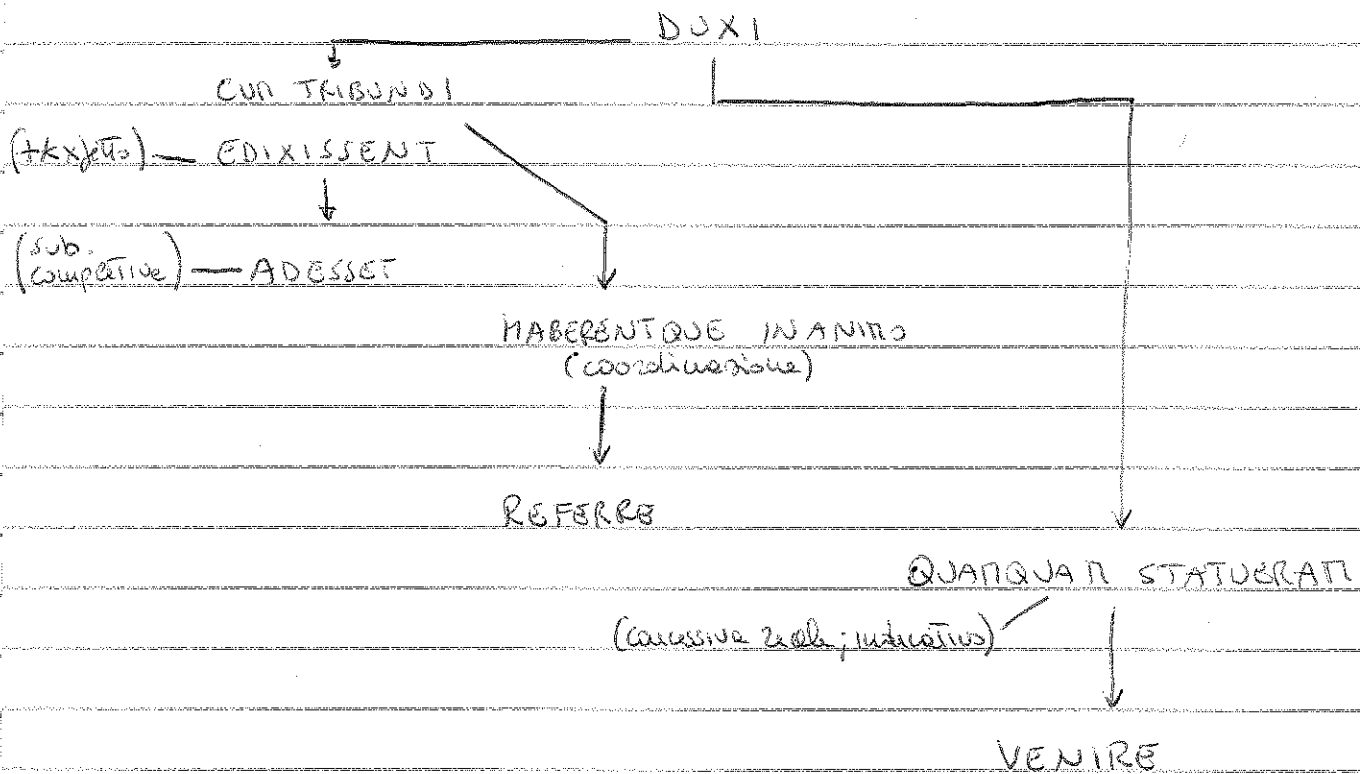 DUXI
CUM TRIBUNDI
(+k xjetto) — EDIXISSENT
(sub.
completive) — ADESSET
HABERENTQUE IN ANIMO
(coordinazione)
REFERRE
QUAMQUAM STATUERAM
(concessiva reale; indicativo)
VENIRE